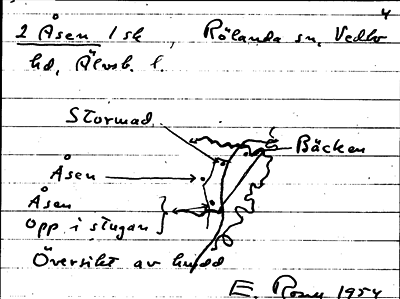 4
2 Åsen 1 sk , Rölanda sn. Vedbo
hd, Älvsb. l.
Stormad
Bäcken
Åsen
Åsen
Opp i stugan
Översikt av
E. 1954